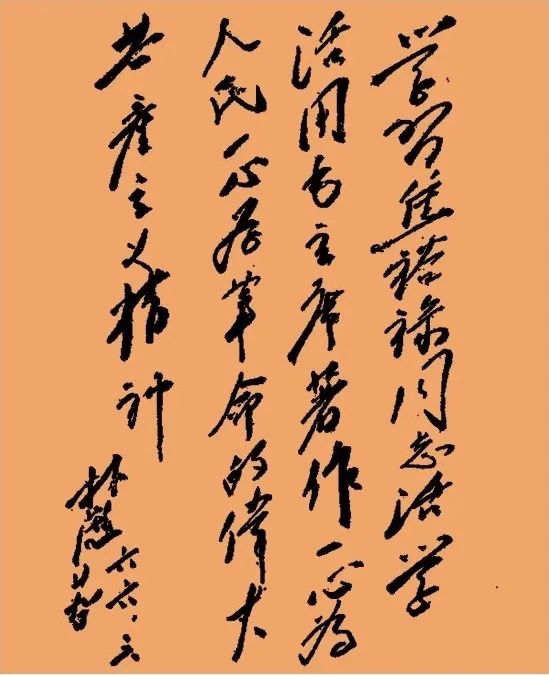 学習焦裕禄同志活学
活用毛主席著作一心為
人民一心為革命的偉大
共産主义精神
六六.三